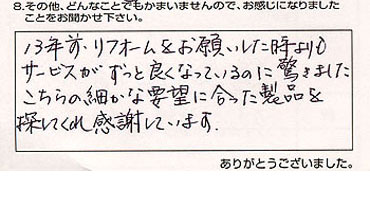 8.その他、どんなことでもかまいませんので、お感じになりました
ことをお聞かせ下さい。
13年前、リフォームをお願いした時よりも
サービスがずっと良くなっているのに驚きました
こちらの細かな要望に合った製品を
探してくれ感謝しています。
ありがとうございました。